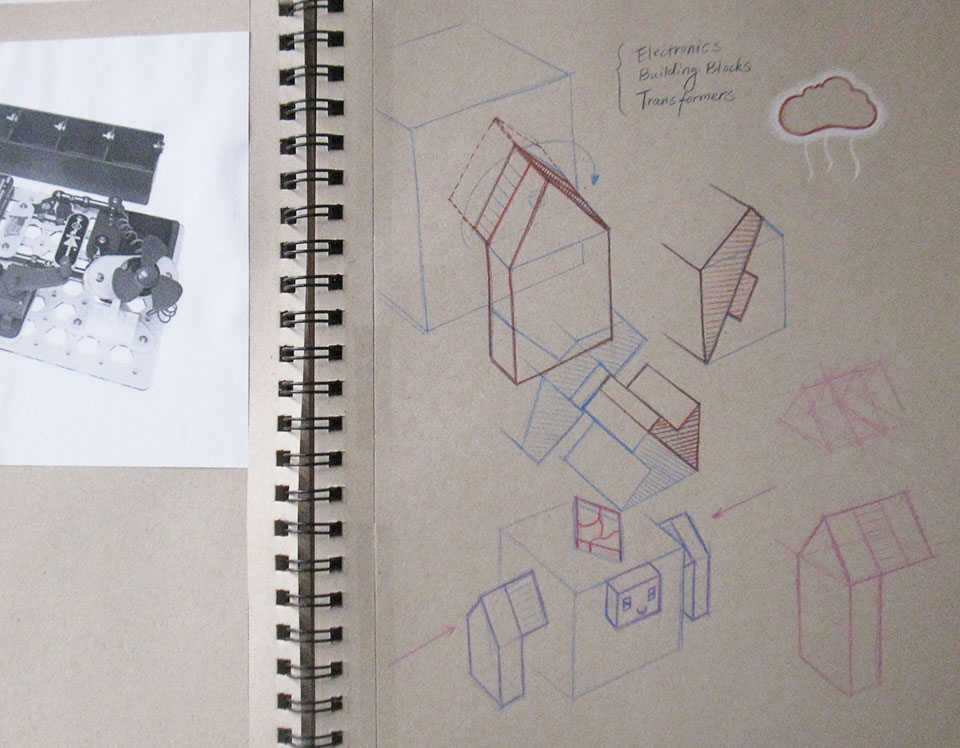 Electronics
Building Blocks
Transformers